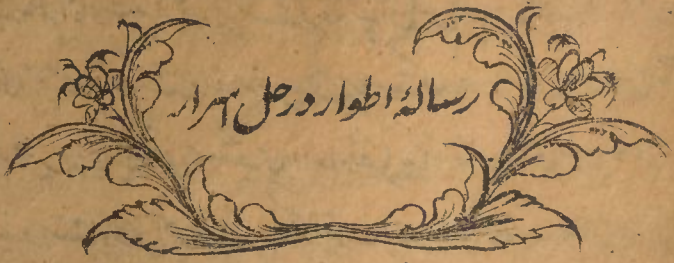 رسالۀ اطوار در حل اسرار